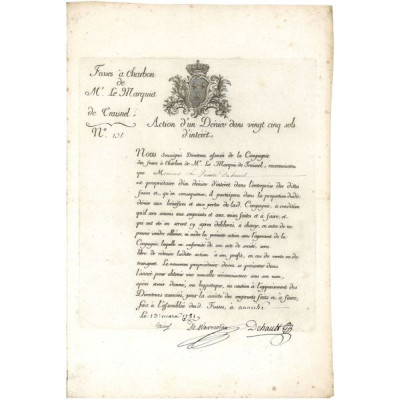 Fosses à Charbon
de
Mr. Le Marquis
de Traisnel.
No. 131
Action d'un Denier dans vingt cinq sols
d'intérêt.
Nous Soussignés Directeurs associés de la Compagnie
des fosses à Charbon de Mr. Le Marquis de Traisnel, reconnaissons
que Monsieur
est propriétaire d'un denier d'intérêt dans l'entreprise des dittes
fosses et, qu'en conséquence, il participera dans la proportion dudit
denier aux bénéfices et aux pertes de lad. Compagnie, à condition
qu'il aura soumis aux emprunts et aux mises faites et à faire, et
qui ont été ou seront cy après délibérés, à charge, en outre de ne
pouvoir vendre, aliéner, ni céder la présente action sans l'agrément de la
Compagnie, laquelle en conformité de son acte de société, sera
libre de retenir laditte action, à son profit, en cas de vente ou de
transport. Le nouveau propriétaire devra se présenter dans
l'année pour obtenir une nouvelle reconnaissance en son nom,
après avoir donné, ou hypothèque, ou caution à l'appaisement des
Directeurs associés, pour la sûreté des emprunts faits et à faire,
fait à l'assemblée desd. Fosses, à
Le 13 mars 1781
Dehault